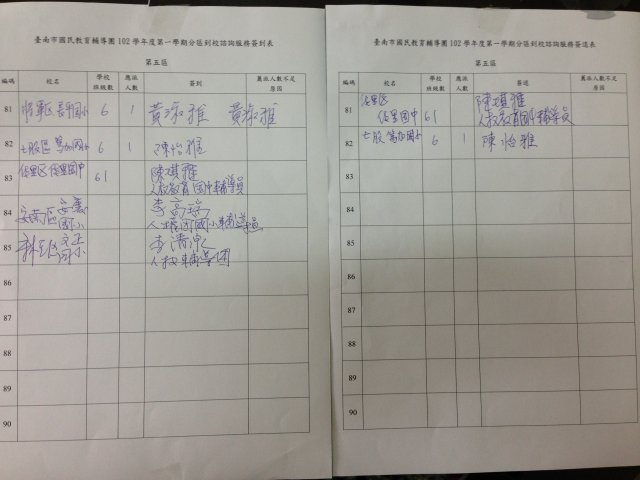 臺南市國民教育輔導團102學年度第一學期分區到校諮詢服務簽到表
第五區
編碼 校名 學校班級數 應派人數 簽到 薦派人數不足原因
81 將軍區長平國小 6 1 黃淑雅 黃淑雅
82 七股區篤加國小 6 1 陳怡雅
83 佳里區佳里國中 61 陳琪雅
人權教育國中輔導員
84 安南區 國小 李高
人權 國小輔導員
85 國小 李清泉
人權輔導團
86
87
88
89
90
臺南市國民教育輔導團102學年度第一學期分區到校諮詢服務簽退表
第五區
編碼 校名 學校班級數 應派人數 簽退 薦派人數不足原因
81 佳里區 陳琪雅
佳里國中 61 人權教育國中輔導員
82 七股 篤加國小 6 1 陳怡雅
83
84
85
86
87
88
89
90